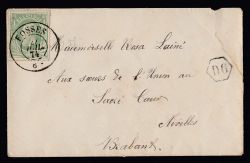 FOSSES
JUIL
74
6
Mademoiselle Rosa Lainé
D6
Aux soeurs de l'Union au
Sacré Coeur
Nivelles
Brabant